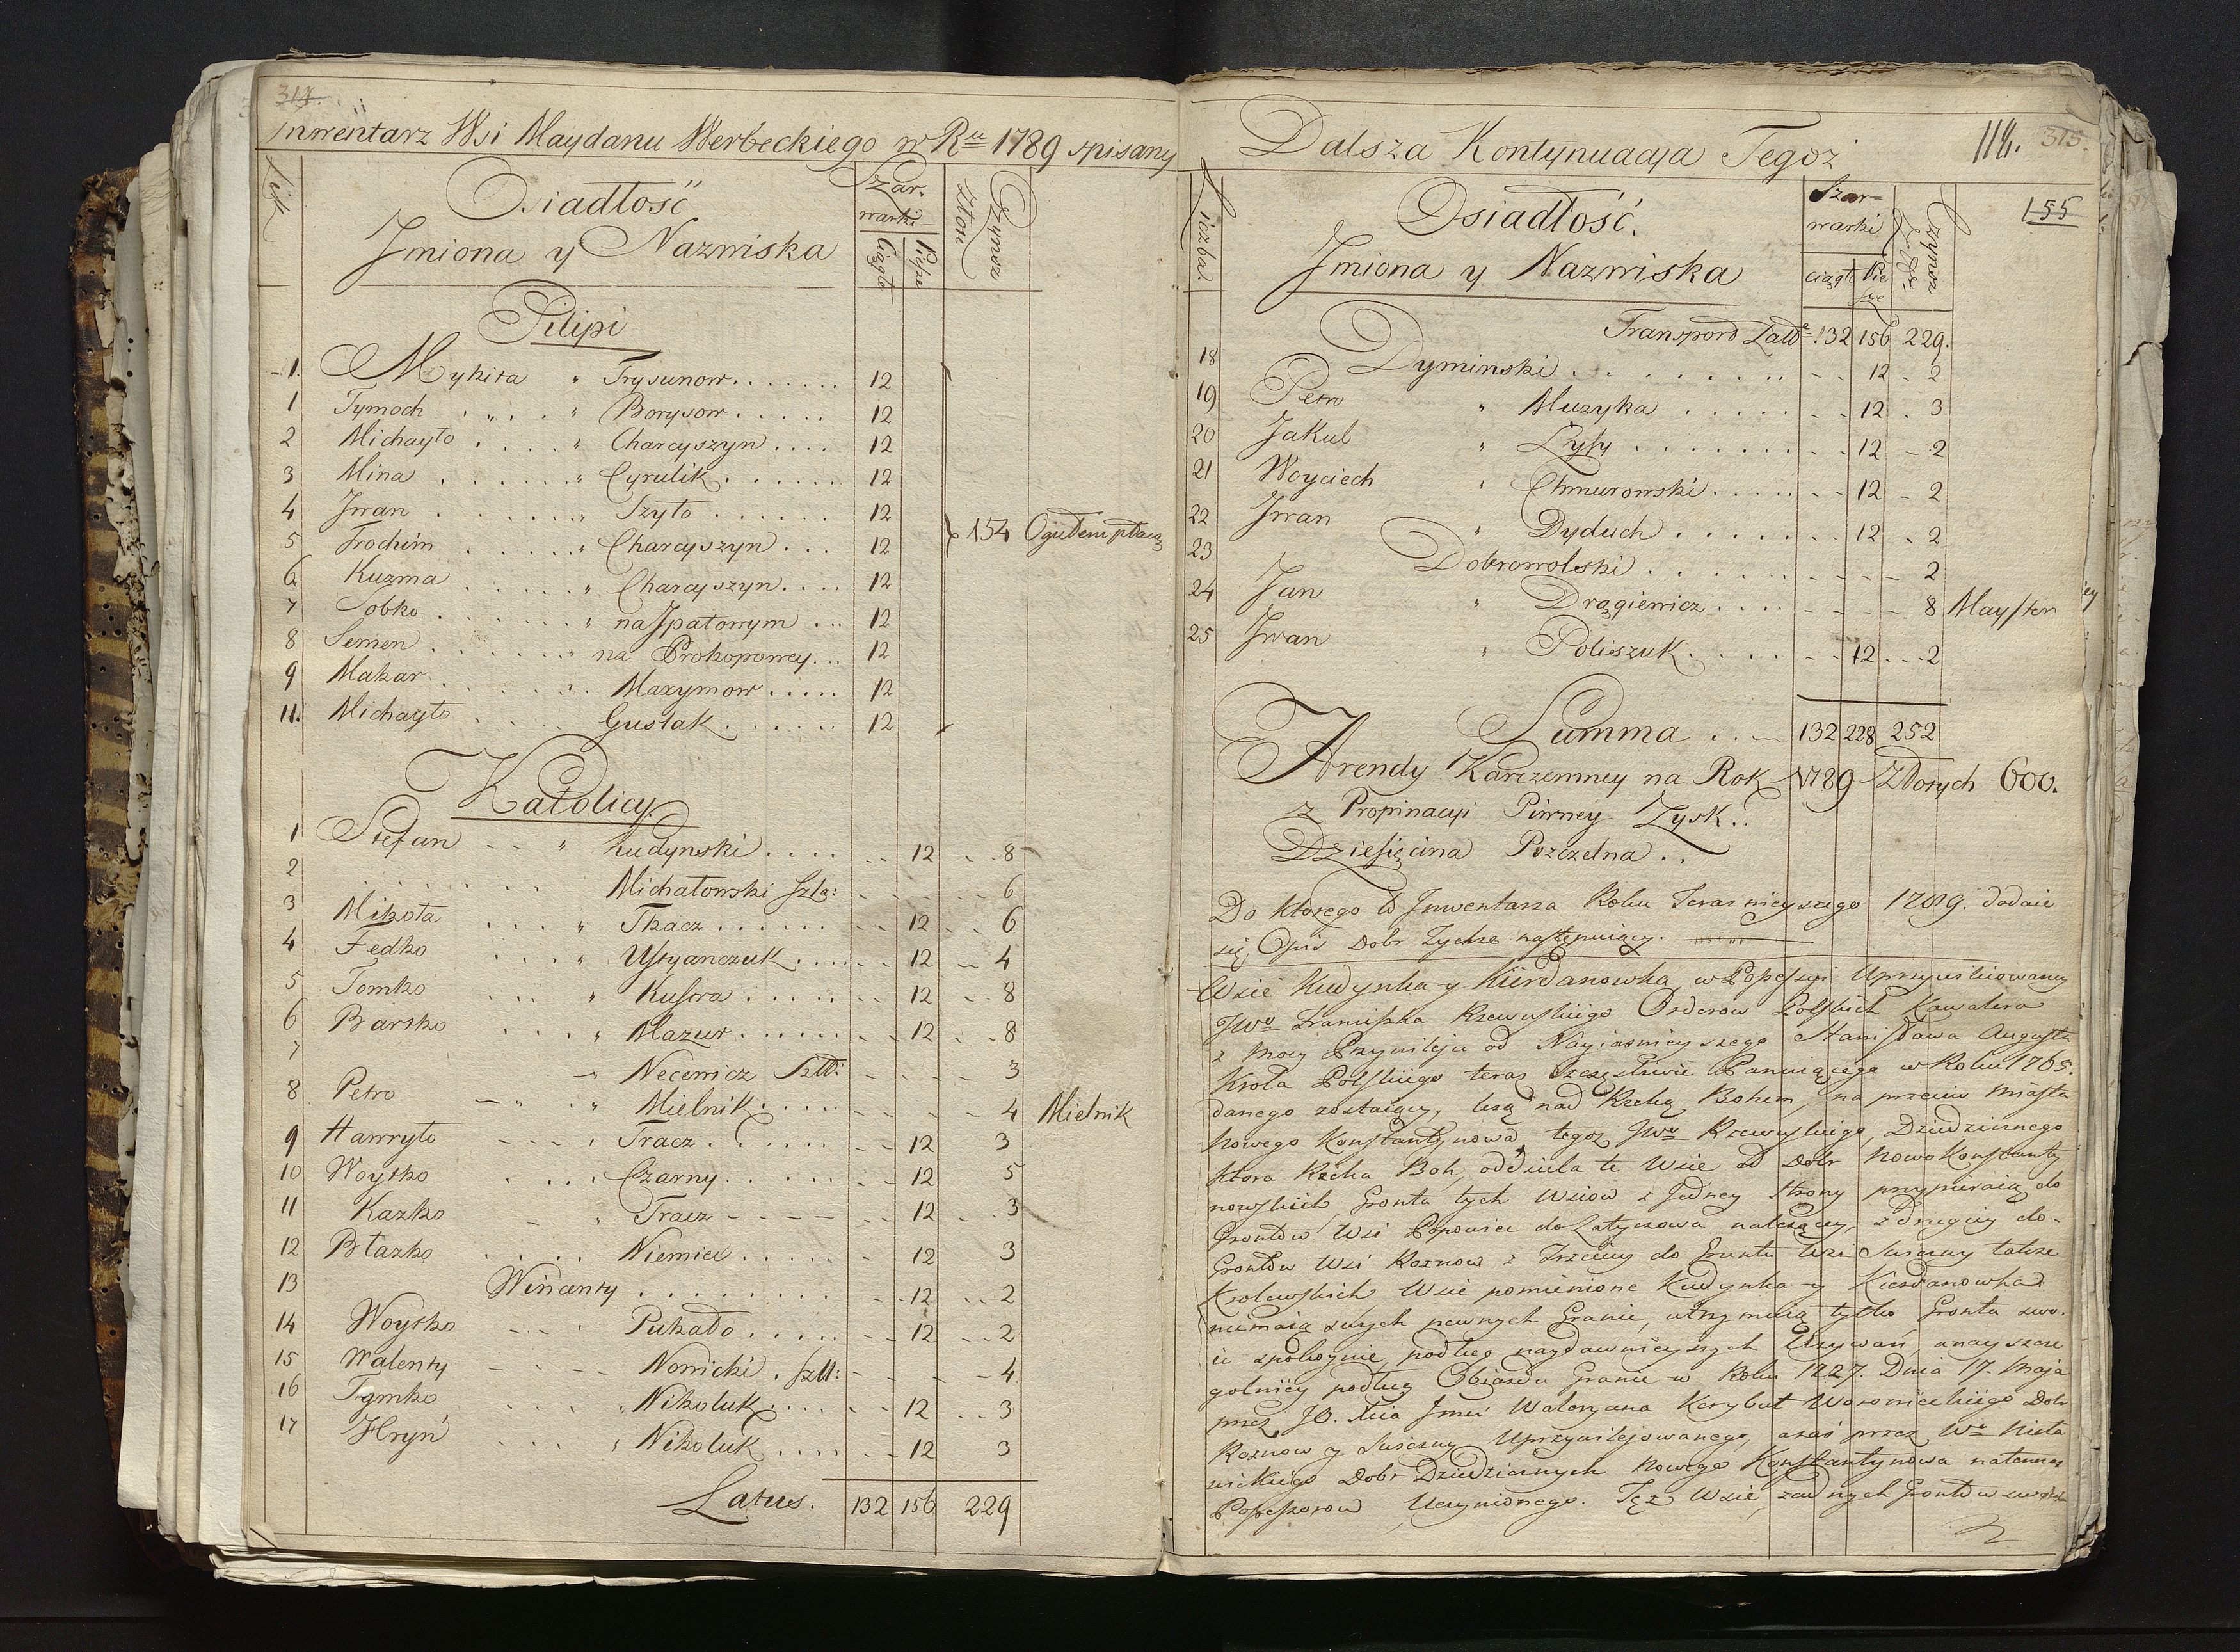 314.
Inwentarz Wsi Maydanu Werbeckiego w Ru 1789 spisany
Osiadłość
Jmiona y Nazwiska
Szar-
warki
Ciągłe
Piesze
Złote
Czynsz
Pilipi
1. Mykita " Trysunow....... 12
1 Tymoch " Borysow..... 12
2 Michayło " Charcyszyn.... 12
3 Mina " Cyrulik....... 12
4 Jwan " Szyło....... 12
5 Trochim " Charcyszyn... 12 154 Ogułem płacą
6 Kuzma " Charcyszyn.... 12
7 Sobko " na Jpatowym ... 12
8 Semen " na Prokopowey... 12
9 Makar Maxymow..... 12
11. Michayło Guslak...... 12
Katolicy.
1 Stefan " Kudynski.... 12 8
2 Michałowski Szla: 6
3 Mikoła " Tkacz...... 12 6
4 Fedko " Ustyanczuk.... 12 4
5 Tomko " Kustra..... 12 8
6 Bartko " Mazur...... 12 8
7 Necewicz Szll: 3
8 Petro " Mielnik.... 4 Mielnik
9 Hawryło Tracz...... 12 3
10 Woytko Czarny..... 12 5
11 Kazko " Tracz 12 3
12 Błazko Niemiec..... 12 3
13 Wincenty........ 12 2
14 Woytko Pukało..... 12 2
15 Walenty Nowicki. Szll: 4
16 Tymko Nikoluk.... 12 3
17 Hryń Nikoluk.... 12 3
Latus. 132 156 229
Dalsza Kontynuacya Tegoż
118. 315.
155
Liczba.
Osiadłość.
Jmiona y Nazwiska
Szar-
warki
ciągłe
Pie
sze
Czynsz
Transport 132 156 229.
18 Dyminski........ 12 2
19 Petro " Muzyka..... 12 3
20 Jakub " Łysy....... 12 2
21 Woyciech " Chmurowski.... 12 2
22 Jwan " Dyduch...... 12 2
23 Dobrowolski...... 2
24 Jan " Drągiewicz.... 8 Mayster
25 Jwan " Poliszuk..... 12 2
Summa 132 228 252
Arendy Karczemney na Rok 1789 Złotych 600.
z Propinacyi Piwney Zysk..
Dziesięcina Pszczelna..
Do ktorego to Jnwentarza Roku Teraznieyszego 1789. dodaie
się Opis Dobr Tychże następuiący.
Wsie Kudynka y Kierdanowka w Possessyi Uprzywileiowaney
JWo Franciszka Rzewuskiego Orderow Polskich Kawalera
z mocy Przywileju od Nayiasnieyszego Stanisława Augusta
Krola Polskiego teraz szczęśliwie Panuiącego w Roku 1765.
danego zostaiący, leżą nad Rzeką Bohem, na przeciw Miasta
Nowego Konstantynowa, tegoż JWo Rzewuskiego Dziedzicznego
ktora Rzeka Boh, oddziela te Wsie od Dobr Nowo Konstanty
nowskich, Gronta tych Wsiow z Jedney strony przypieraią do
Grontow Wsi Popowiec do Latyczowa należący, z drugiey do
Grontow Wsi Roznow z trzeciey do Gruntu Wsi Susczny także
Krolewskich Wsie pomienione Kudynka y Kierdanowka
niemaią swych pewnych Granic, utrzymuią tylko Gronta swo-
ie spokoynie podług naydawnieyszych Używań, a nayszcze
golniey podług Obiazdu Granic w Roku 1727. Dnia 17. Maja
przez JO. Xcia Jmci Waleryana Korybut Woronieckiego Dobr
Roznow y Susczny Uprzywilejowanego, a zaś przez
Dobr Dziedzicznych Nowego Konstantynowa natenczas
Possessorow Uczynionego. Też Wsie, żadnych Grontow